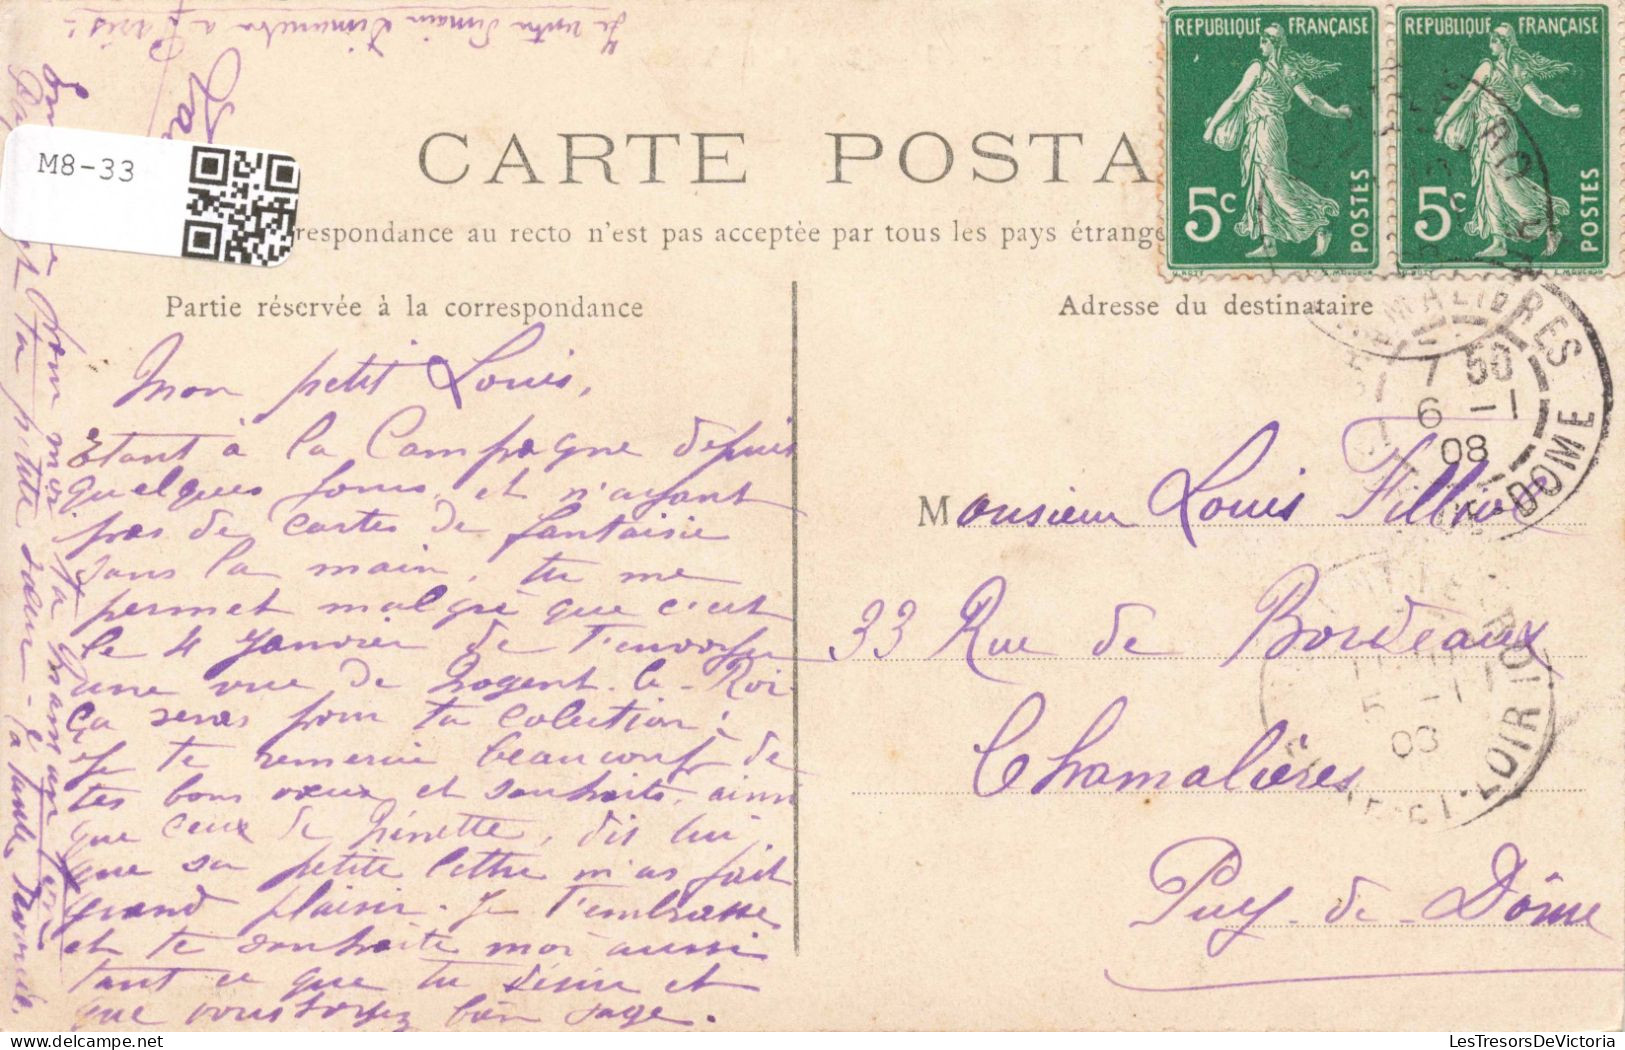 Je rentre demain Dimanche à Paris!
M8-33
CARTE POSTA
respondance au recto n'est pas acceptée par tous les pays étrange
REPUBLIQUE FRANÇAISE
5c
POSTES
REPUBLIQUE FRANÇAISE
5c
POSTES
Partie réservée à la correspondance
Mon petit Louis,
Etant à la Campagne depuis
quelques jours, et n'ayant
pas de cartes de fantaisie
sous la main, tu me
permet malgré que c'est
le 4 Janvier de t'envoyer
une vue de Nogent-le-Roi
ça seras pour ta colection!
Je te remercie beaucoup de
tes bons voeux et souhaits, ainsi
que ceux de Ninette, dis lui
que sa petite lettre m'as fait
grand plaisir. Je t'embrasse
et te souhaite moi aussi
tant ce que tu désire et
que vous soyez bien sage.
pour moi ta maman, ton
ta petite soeur - et
ta tante
Adresse du destinataire
CHAMALIERES
7 50
6 -1
08
PUY-DE-DOME
Monsieur Louis
33 Rue de Bordeaux
Chamalières
Puy-de-Dôme
5 -1
08
EURE-ET-LOIR
LesTresorsDeVictoria